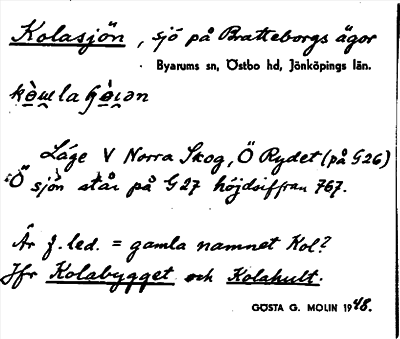 Kolasjön, sjö på Bratteborgs ägor
Byarums sn, Östbo hd, Jönköpings län.
Läge V Norra Skog, Ö Rydet (på G26)
"Ö" sjön står på G27 höjdsiffran 767.
Är f. led. = gamla namnet Kol?
Jfr Kolabygget och Kolahult.
GÖSTA G. MOLIN 1948.